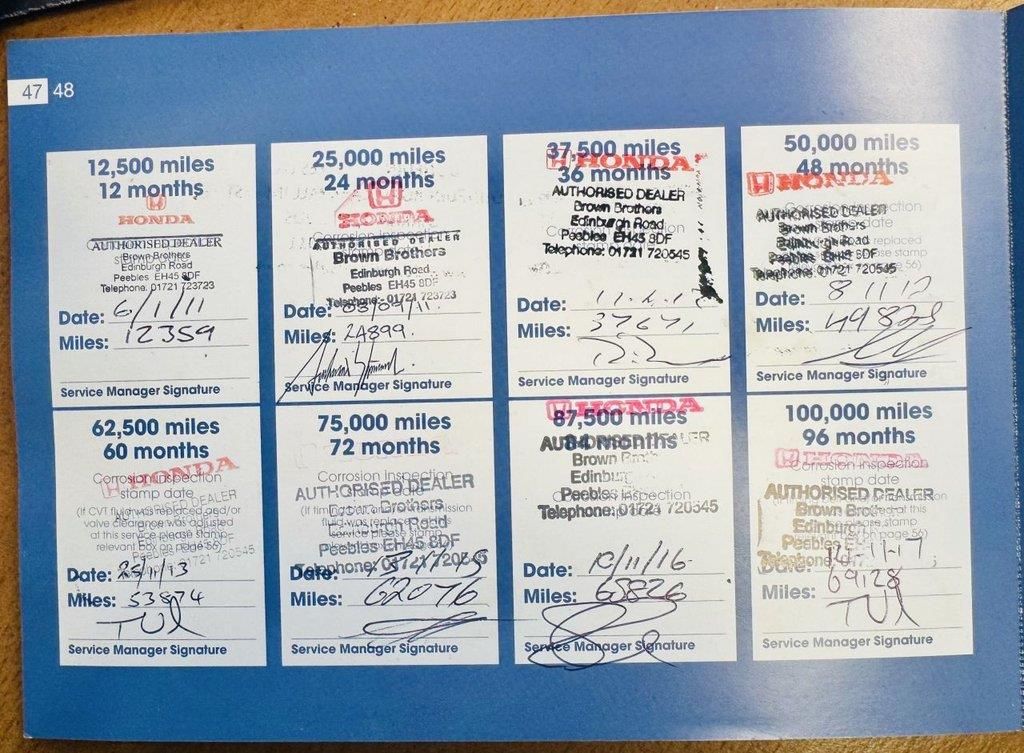 47 48
12,500 miles
12 months
HONDA
AUTHORISED DEALER
Brown Brothers
Edinburgh Road
Peebles EH45 8DF
Telephone: 01721 723723
Date: 6/1/11
Miles: 12359
Service Manager Signature
25,000 miles
24 months
HONDA
Corrosion Inspection
AUTHORISED DEALER
Brown Brothers
Edinburgh Road
Peebles EH45 8DF
Telephone: 01721 723723
Date: 08/09/11.
Miles: 24899.
Service Manager Signature
37,500 miles
36 months
HONDA
AUTHORISED DEALER
Brown Brothers
Edinburgh Road
Peebles EH45 8DF
Telephone: 01721 720545
Date:
Miles: 37671
Service Manager Signature
50,000 miles
48 months
HONDA
Corrosion inspection
AUTHORISED DEALER
Brown Brothers
Edinburgh Road
Peebles EH45 8DF
Telephone: 01721 720545
Date: 8 11 12
Miles: 49828
Service Manager Signature
62,500 miles
60 months
HONDA
Corrosion inspection
stamp date
AUTHORISED DEALER
(If CVT fluid was replaced and/or
valve clearance was adjusted
at this service please stamp
relevant box on page 56)
01721 720545
Date: 25/11/13
Miles: 53874
Service Manager Signature
75,000 miles
72 months
Corrosion inspection
AUTHORISED DEALER
Brothers
Edinburgh Road
Peebles EH45 8DF
Telephone: 01721 720545
Date:
Miles: 62076
Service Manager Signature
87,500 miles
84 months
HONDA
AUTHORISED DEALER
Brown Broth
Edinbur
Peebles
Corrosion inspection
Telephone: 01721 720545
Date: 10/11/16
Miles: 65826
Service Manager Signature
100,000 miles
96 months
HONDA
Corrosion inspection
stamp date
AUTHORISED DEALER
Brown Brothers
Edinburgh
Peebles
Telephone: 017
Date: 14-11-17
Miles: 69128
Service Manager Signature